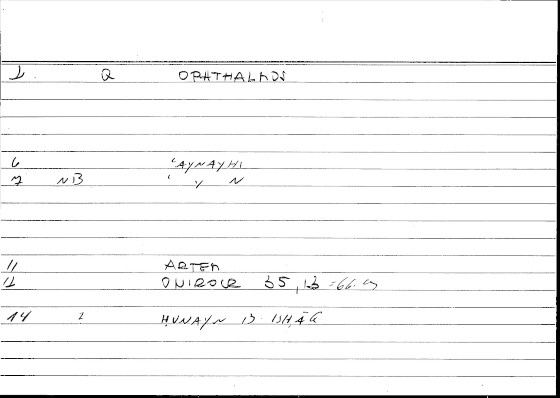 1. Q OPHTHALMOS
6 ʿAYNAYHI
7 NB ʿ Y N
11 ARTEM
12 ONIROCR 35,13 = 66.
14 2 ḤUNAYN B. ISḤĀQ